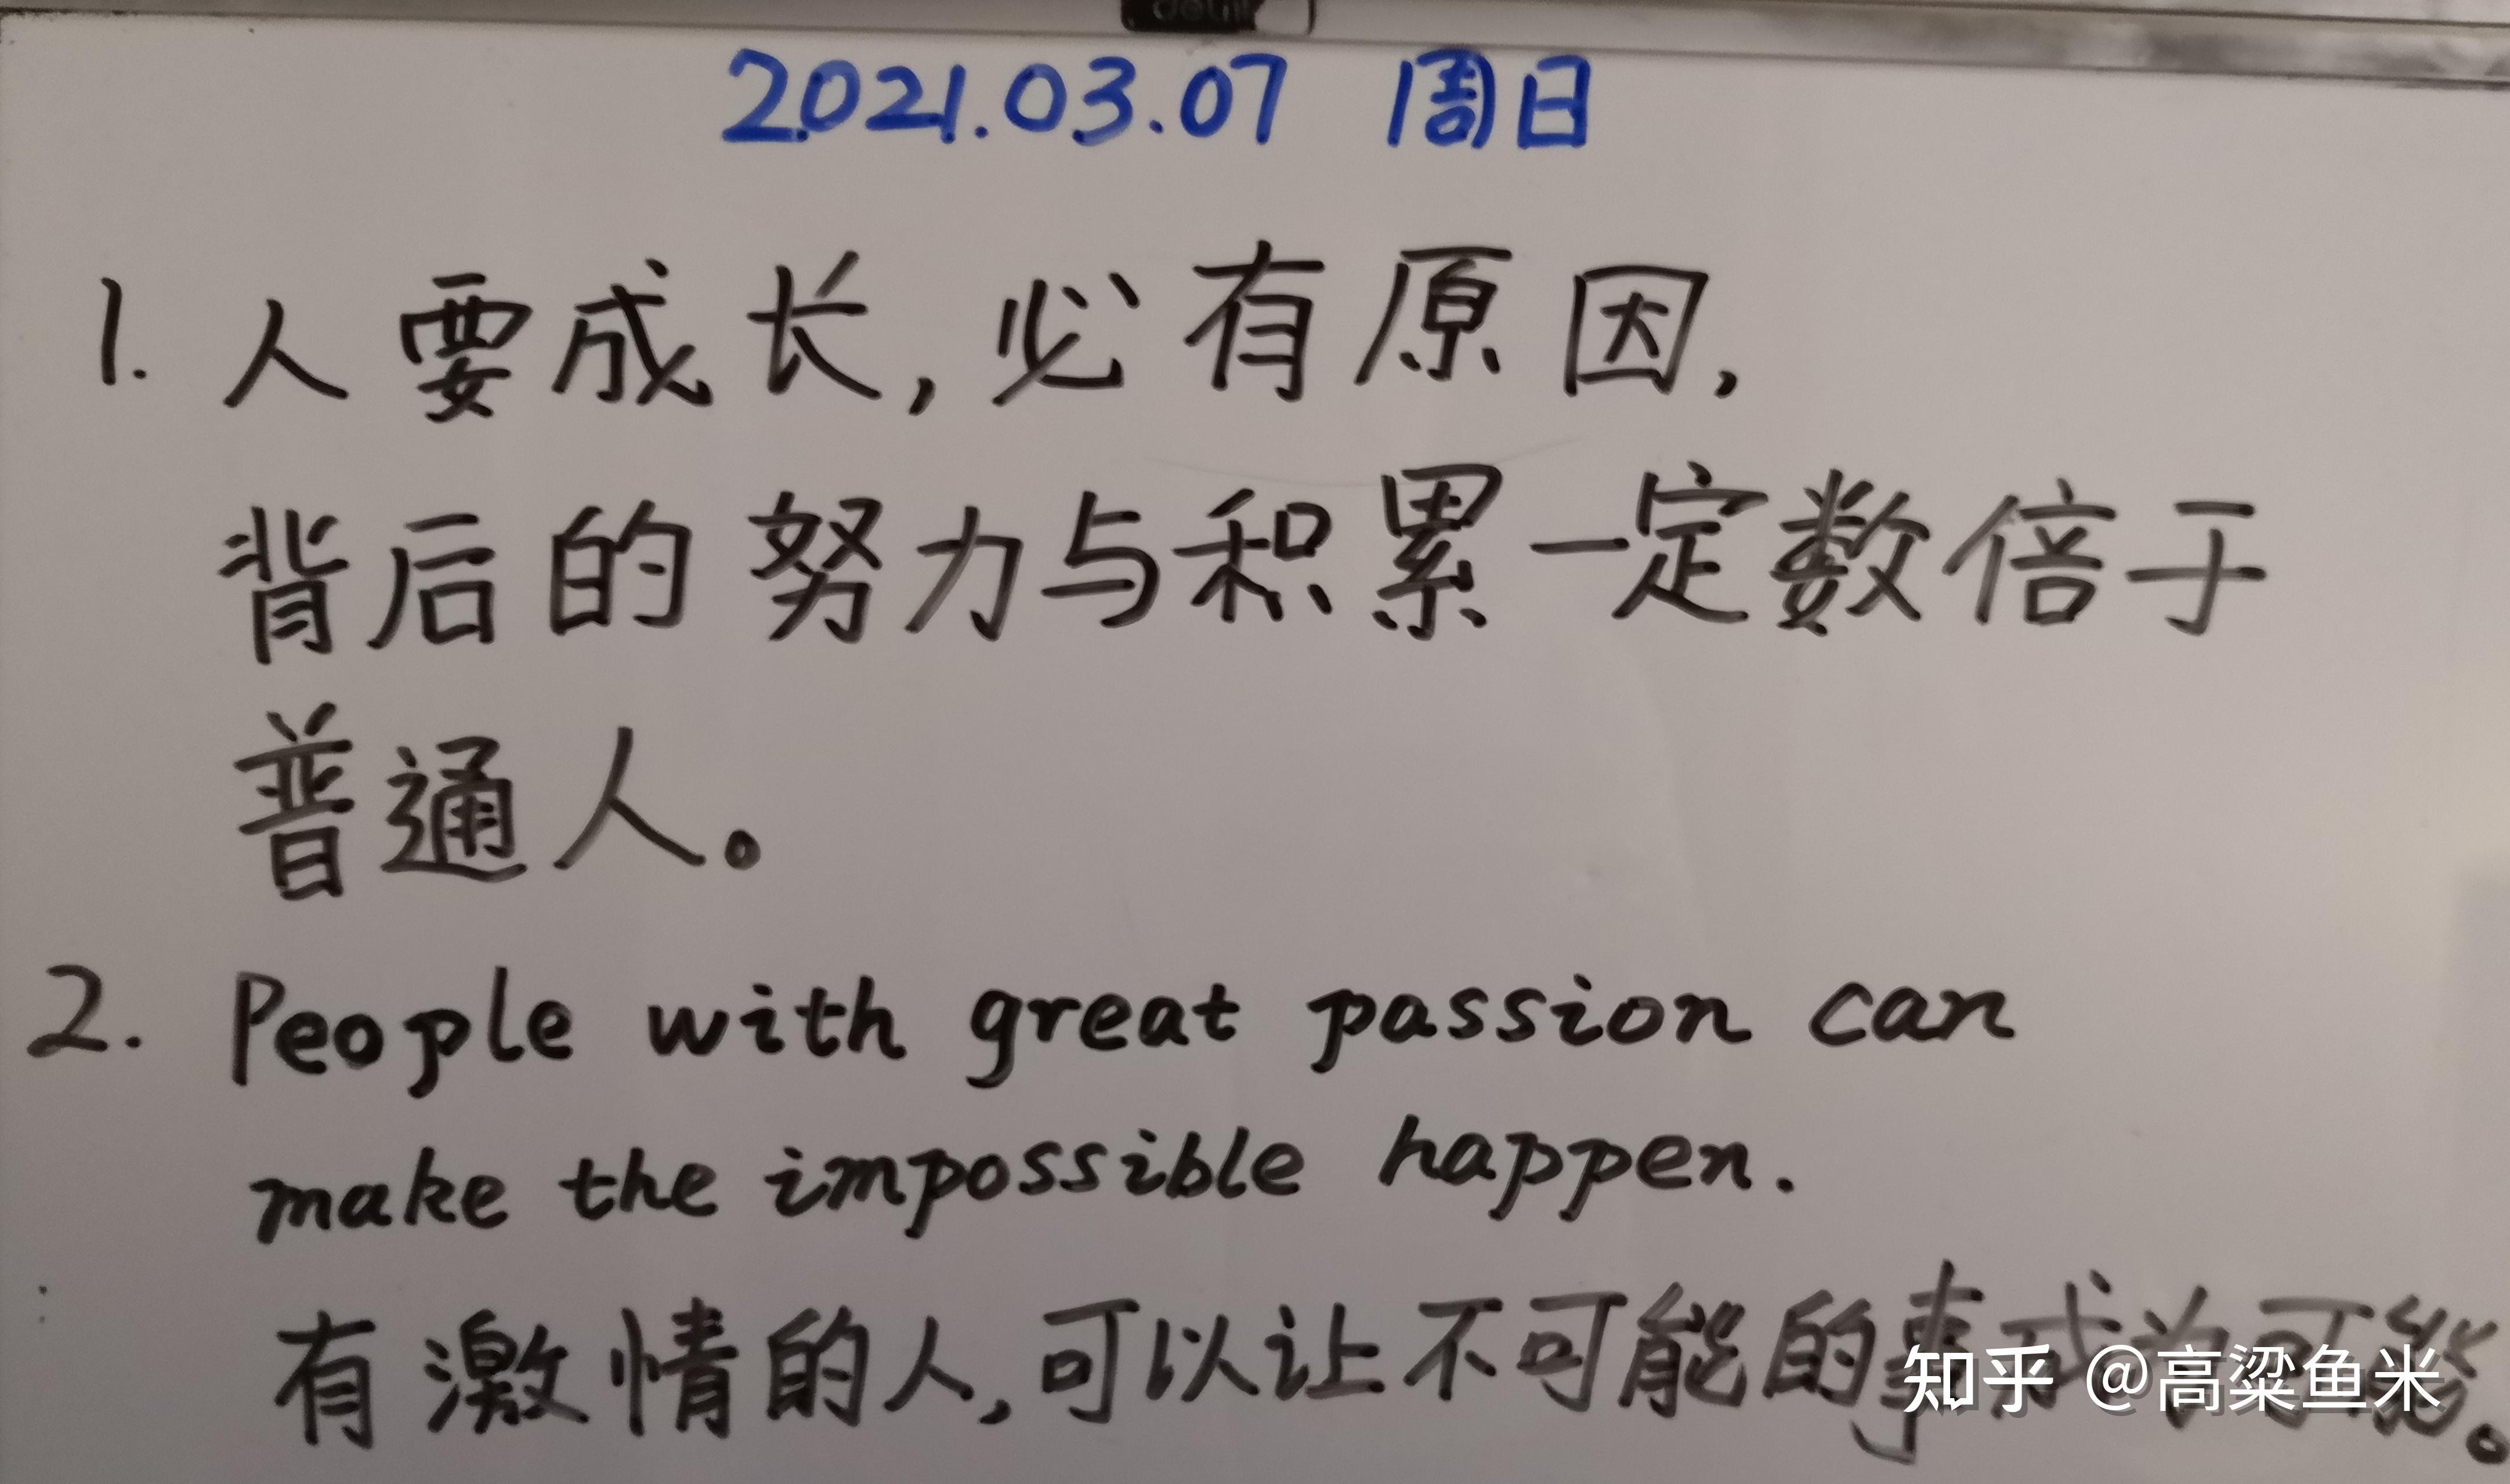 2021.03.07 周日
1. 人要成长,必有原因,
背后的努力与积累一定数倍于
普通人。
2. People with great passion can
make the impossible happen.
有激情的人,可以让不可能的事成为可能。
知乎 @高粱鱼米